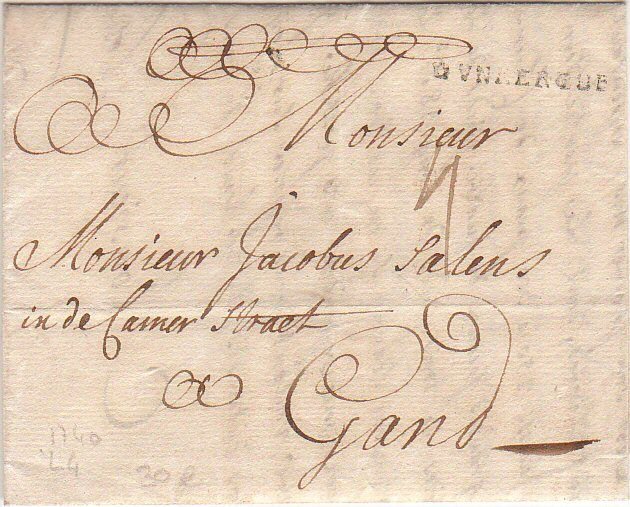 DVNKERQUE
Monsieur
4
Monsieur Jacobus Salens
in de Camer Straet
a
Gand
1740
L4